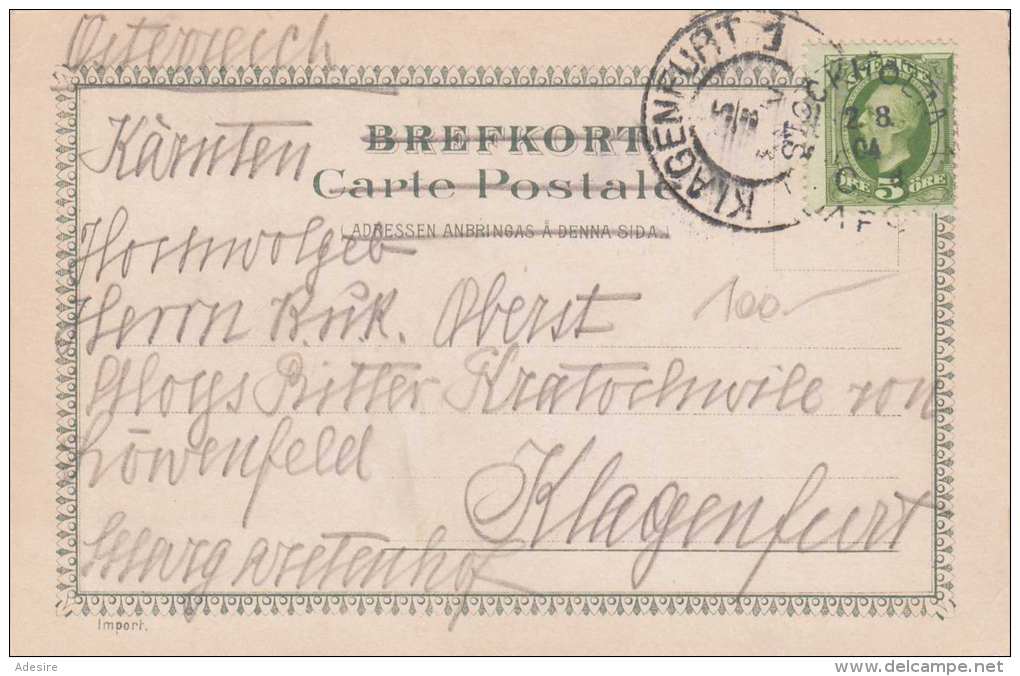 Österreich
Kärnten
BREFKORT
Carte Postale
(ADRESSEN ANBRINGAS Å DENNA SIDA.)
KLAGENFURT 1
STOCKHOLM
2 8.
04
ÖRE 5 ÖRE
Hochwolgeb
Herrn K.u.K. Oberst
100
Aloys Ritter Kratochwile von
Löwenfeld
Klagenfurt
Margaretenhof
Import.
Adesire
delcampe.net